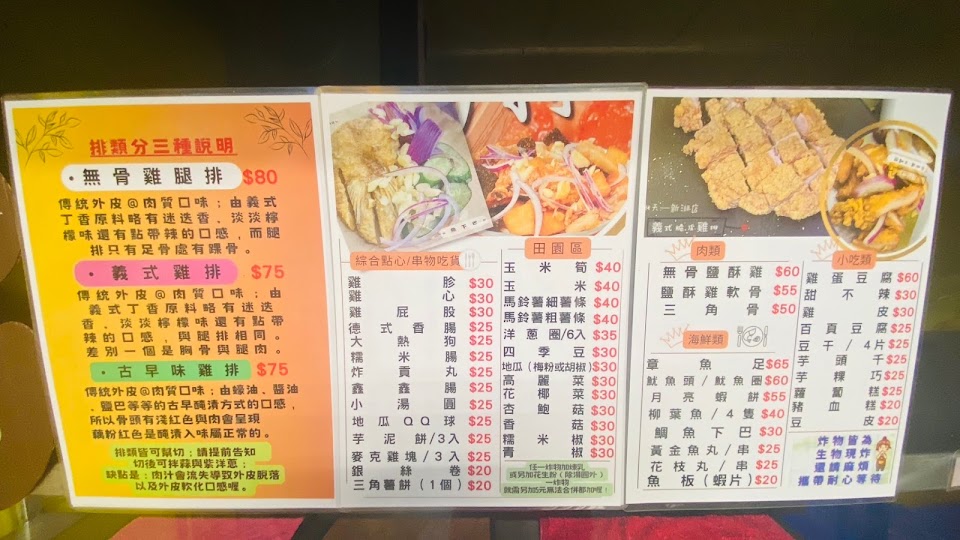 排類分三種說明
·無骨雞腿排 $80
傳統外皮@肉質口味；由義式
丁香原料略有迷迭香、淡淡檸
檬味還有點帶辣的口感，而腿
排只有足骨處有踝骨。
·義式雞排 $75
傳統外皮@肉質口味；由
義式丁香原料略有迷迭
香、淡淡檸檬味還有點帶
辣的口感，與腿排相同。
差別一個是胸骨與腿肉。
·古早味雞排 $75
傳統外皮@肉質口味；由蠔油、醬油
、鹽巴等等的古早醃漬方式的口感，
所以骨頭有淺紅色與肉會呈現
藕粉紅色是醃漬入味屬正常的。
排類皆可幫切；請提前告知
切後可拌蒜與紫洋蔥；
缺點是：肉汁會流失導致外皮脫落
以及外皮軟化口感喔。
綜合點心/串物吃貨
雞胗 $30
雞心 $30
雞屁股 $30
德式香腸 $25
大熱狗 $25
糯米腸 $25
炸貢丸 $25
鑫鑫腸 $25
小湯圓 $25
地瓜QQ球 $25
芋泥餅/3入 $25
麥克雞塊/3入 $25
銀絲卷 $20
三角薯餅（1個） $20
田園區
玉米筍 $40
玉米 $40
馬鈴薯細薯條 $40
馬鈴薯粗薯條 $40
洋蔥圈/6入 $35
四季豆 $30
地瓜（梅粉或胡椒） $30
高麗菜 $30
花椰菜 $30
杏鮑菇 $30
香菇 $30
糯米椒 $30
青椒 $30
任一炸物加煉乳
或另加花生粉（除湯圓外）
一炸物
就需另加5元無法合併都加喔！
義式脆皮雞排
肉類
無骨鹽酥雞 $60
鹽酥雞軟骨 $55
三角骨 $50
海鮮類
章魚足 $65
魷魚頭/魷魚圈 $60
月亮蝦餅 $55
柳葉魚/4隻 $40
鯛魚下巴 $30
黃金魚丸/串 $25
花枝丸/串 $25
魚板（蝦片） $20
小吃類
雞蛋豆腐 $60
甜不辣 $30
雞皮 $30
百頁豆腐 $25
豆干/4片 $25
芋頭千 $25
芋粿巧 $25
蘿蔔糕 $25
豬血糕 $20
豆皮 $20
炸物皆為
生物現炸
還請麻煩
攜帶耐心等待